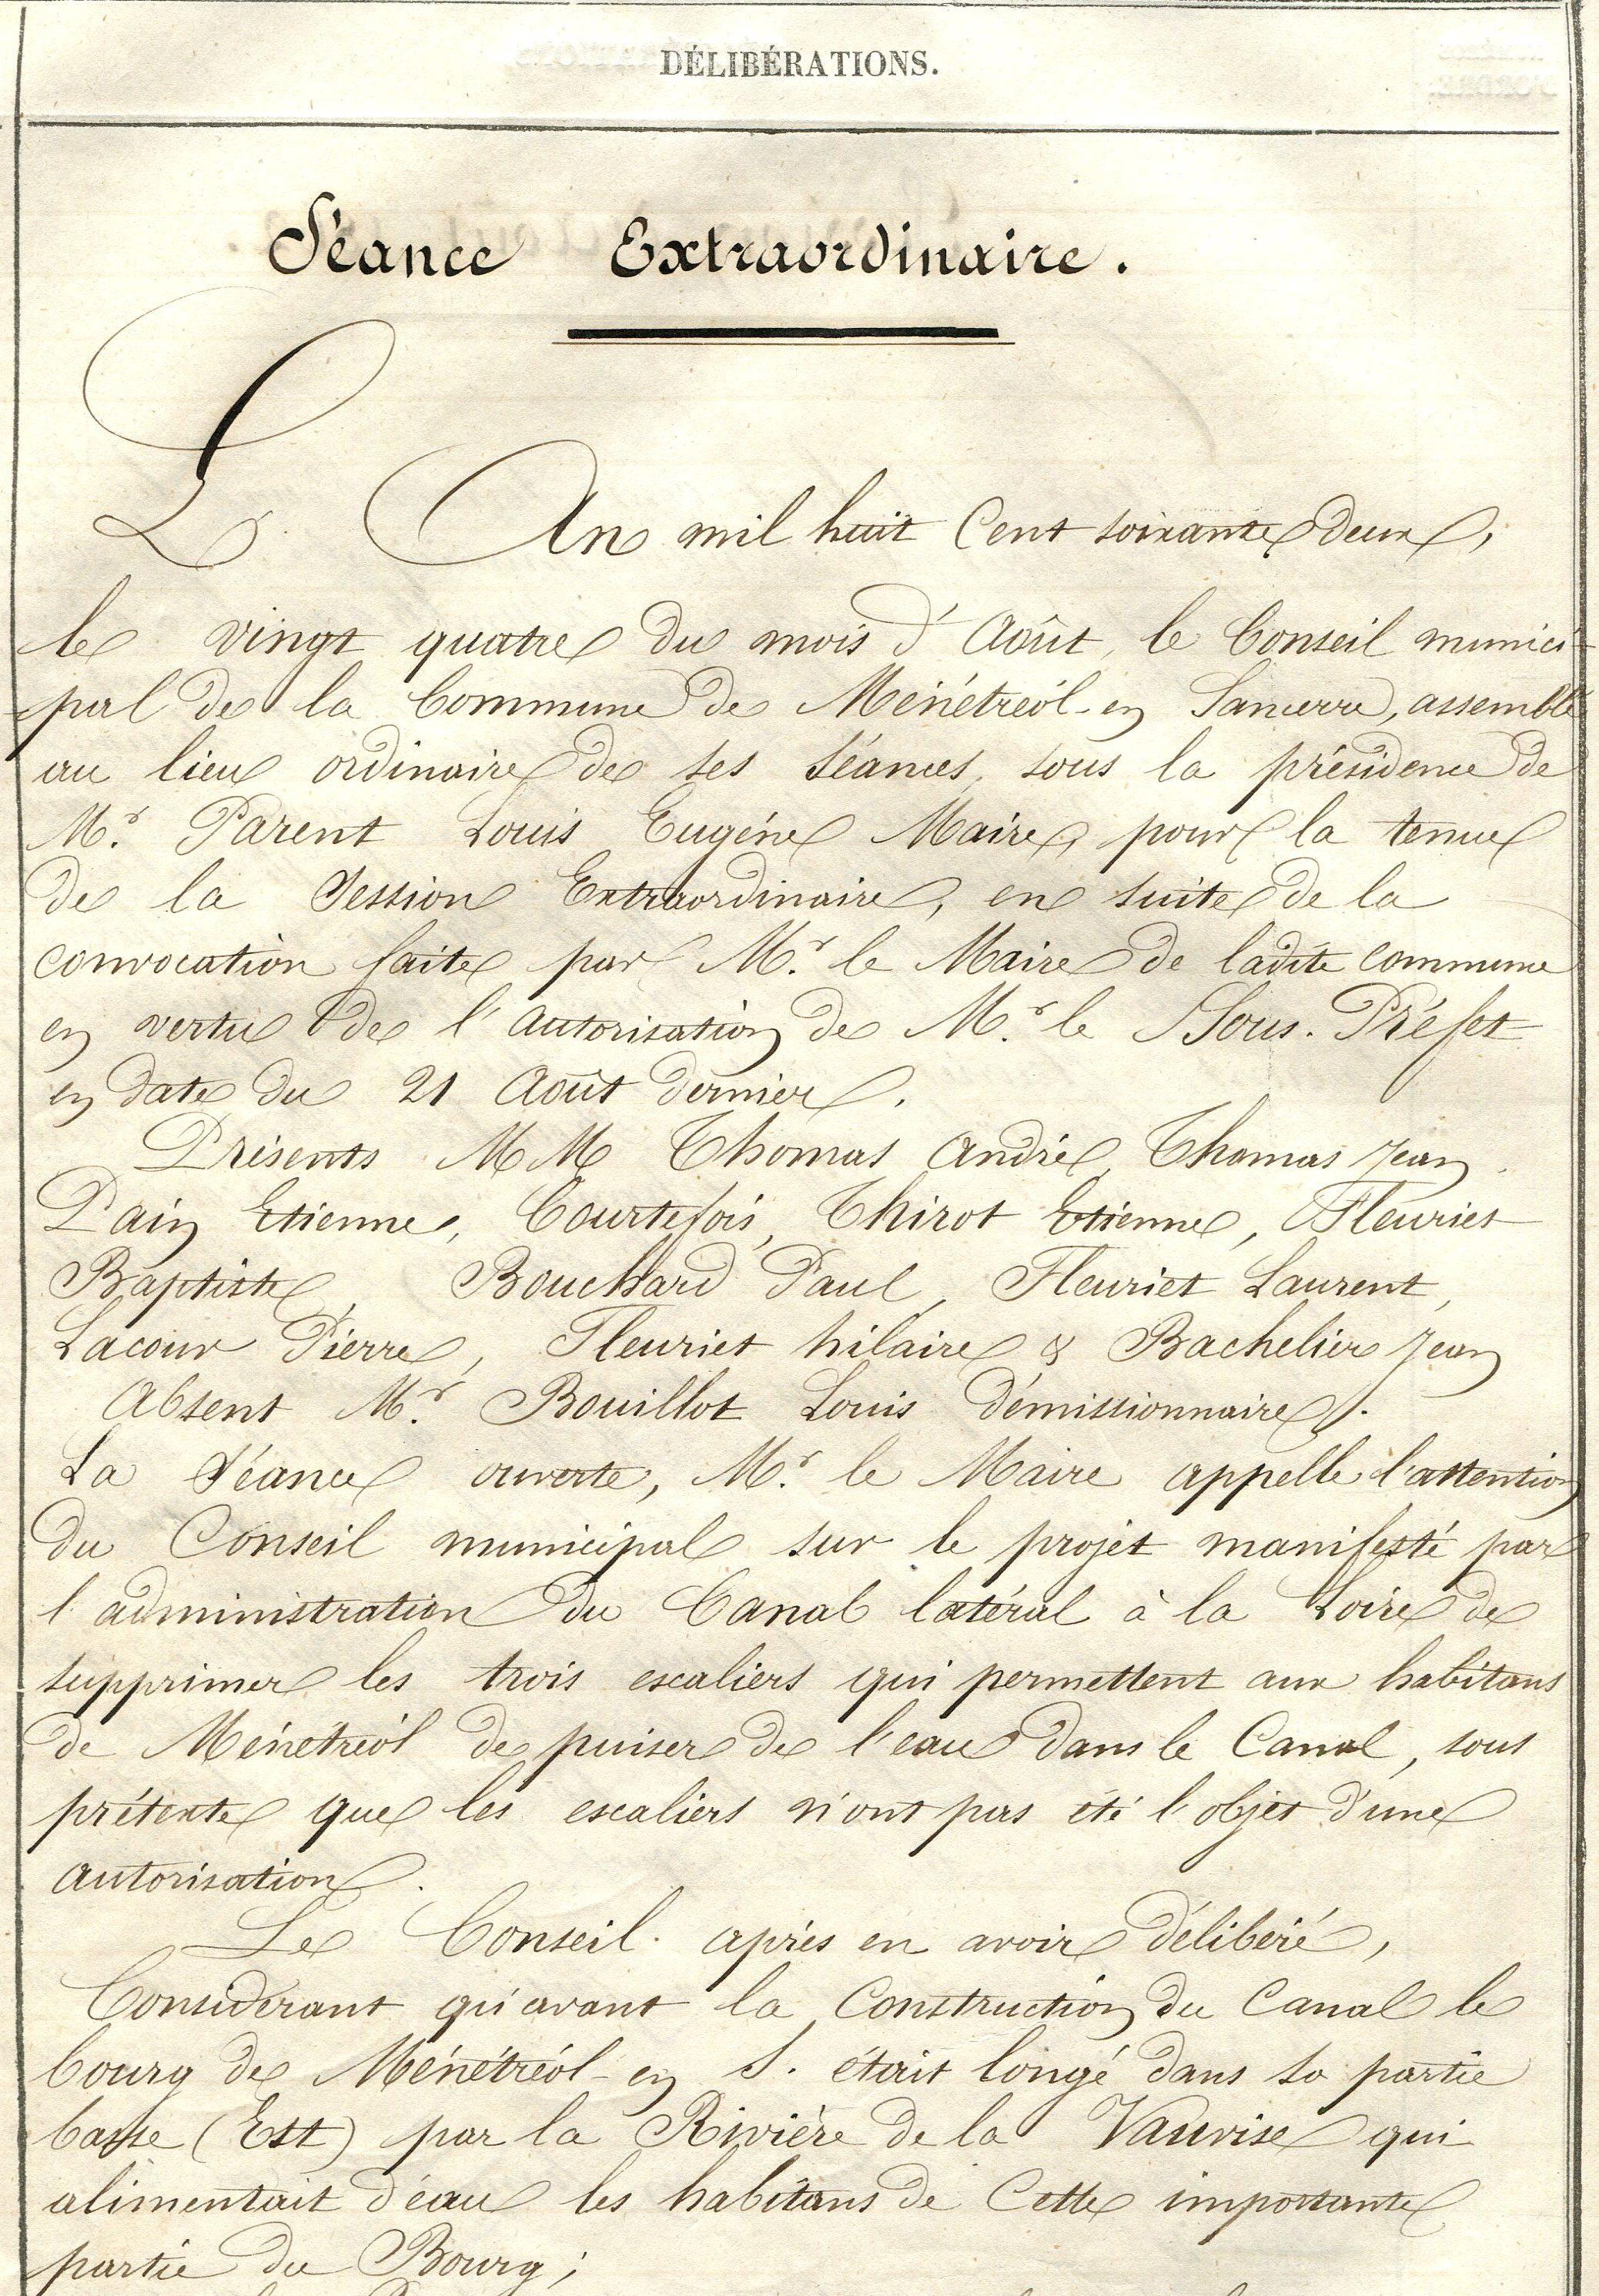 DÉLIBÉRATIONS.
Séance Extraordinaire.
L'An mil huit Cent soixante deux,
le vingt quatre du mois d'Août, le Conseil munici-
pal de la Commune de Ménétréol-en Sancerre, assemblé
au lieu ordinaire de ses Séances, sous la présidence de
Mr. Parent Louis Eugéne Maire, pour la tenue
de la Session Extraordinaire, en suite de la
convocation faite par Mr. le Maire de ladite commune
en vertu de l'Autorisation de Mr. le Sous-Préfet
en date du 21 Août dernier.
Présents MM Thomas André, Thomas Jean.
Pain Etienne, Courtefois, Thirot Etienne, Fleuriet
Baptiste, Bouchard Paul, Fleuriet Laurent,
Lacour Pierre, Fleuriet hilaire & Bachelier Jean
Absent Mr. Bouillot Louis démissionnaire.
La Séance ouverte, Mr. le Maire appelle l'attention
du Conseil municipal sur le projet manifesté par
l'administration du Canal latéral à la Loire de
supprimer les trois escaliers qui permettent aux habitans
de Ménétréol de puiser de l'eau dans le Canal, sous
prétexte que les escaliers n'ont pas été l'objet d'une
autorisation.
Le Conseil après en avoir délibéré,
Considérant qu'avant la Construction du Canal le
bourg de Ménétréol-en S. était longé dans sa partie
basse (Est) par la Rivière de la Vauvise qui
alimentait d'eau les habitans de Cette importante
partie du Bourg;